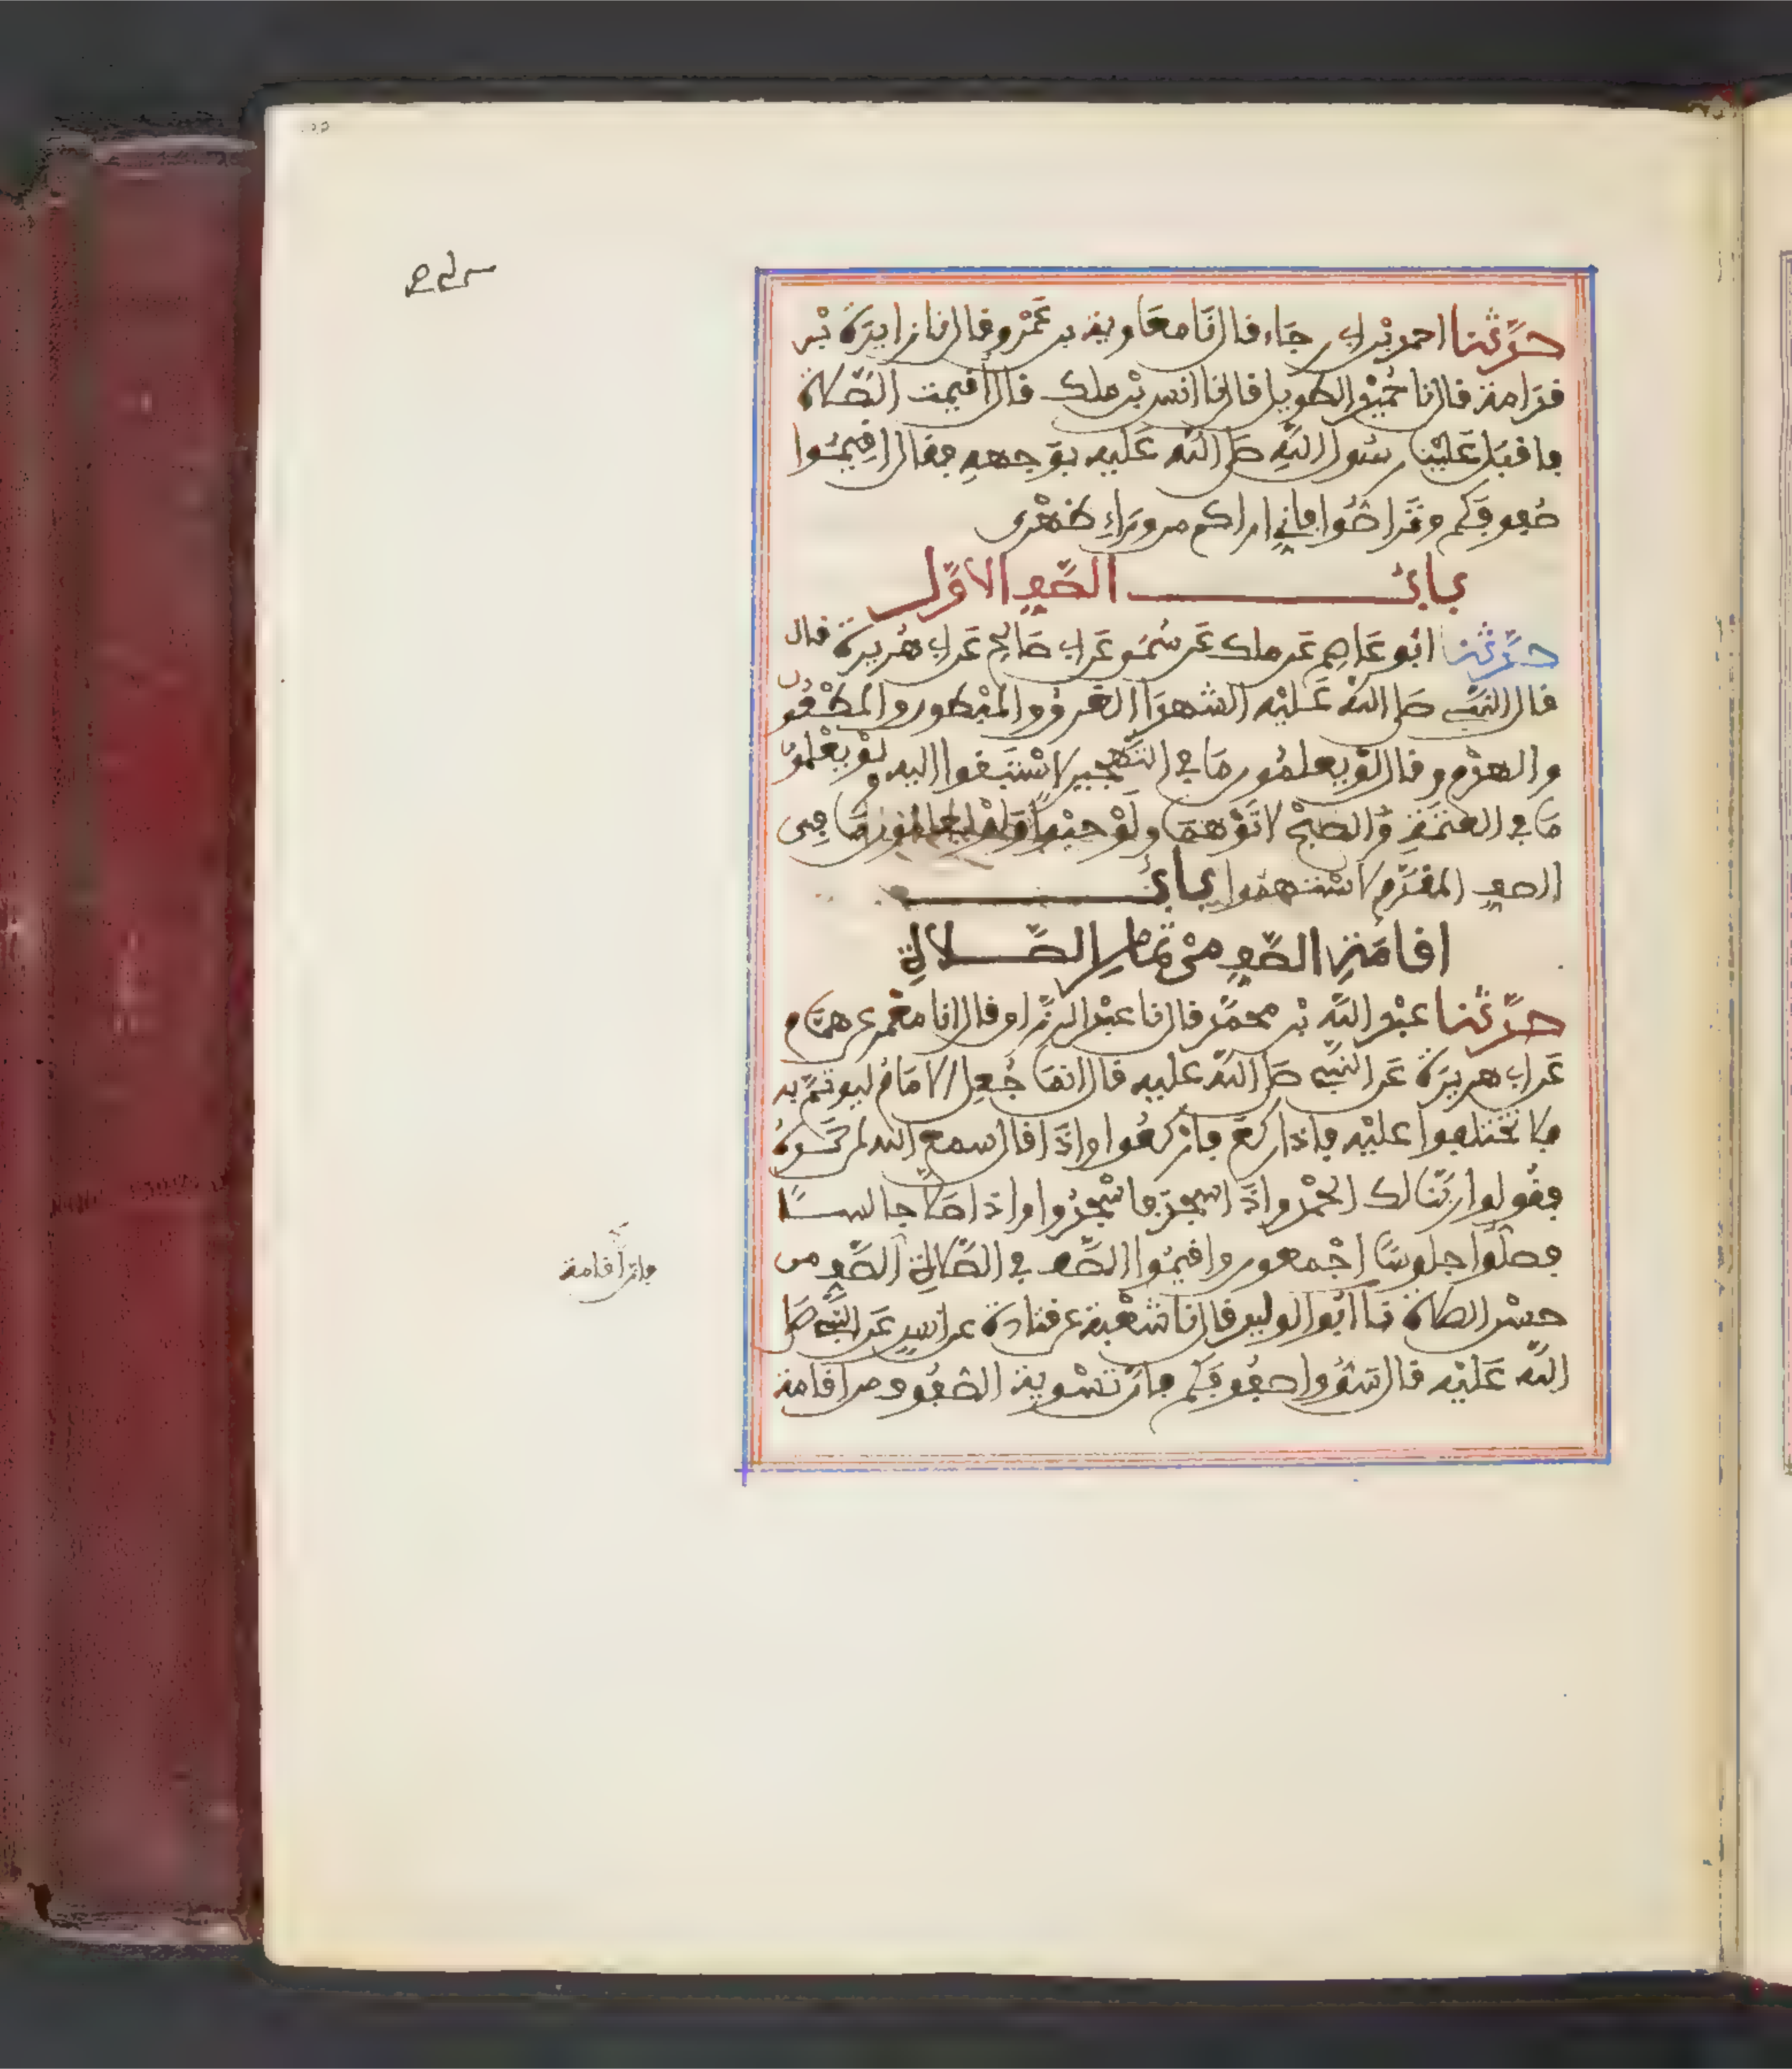 حدثنا احمد بن ابي رجاء قال نا معاوية بن عمرو قال نا زايدة بن
قدامة قال نا حميد الطويل قال نا انس بن ملك قال أقيمت الصلاة
فاقبل علينا رسول الله صلى الله عليه بوجهه فقال اقيموا
صفوفكم وتراصوا فاني اراكم من وراء ظهري
باب الصف الاول
حدثنا ابو عاصم عن ملك عن سمي عن ابي صالح عن ابي هريرة قال
قال النبي صلى الله عليه الشهداء الغرق والمبطون والمطعون
والهدم وقال لو يعلمون ما في التهجير لاستبقوا اليه ولو يعلمون
ما في العتمة والصبح لاتوهما ولو حبوا ولو يعلمون ما في
الصف المقدم لاستهموا باب
اقامة الصف من تمام الصلاة
حدثنا عبد الله بن محمد قال نا عبد الرزاق قال انا معمر عن همام
عن ابي هريرة عن النبي صلى الله عليه قال انما جعل الامام ليوتم به
فلا تختلفوا عليه فاذا ركع فاركعوا واذا قال سمع الله لمن حمده
فقولوا ربنا لك الحمد واذا سجد فاسجدوا واذا صلى جالسا
فصلوا جلوسا اجمعون واقيموا الصف في الصلاة الصف من
حسن الصلاة نا ابو الوليد قال نا شعبة عن قتادة عن انس عن النبي صلى
الله عليه قال سووا صفوفكم فان تسوية الصفوف من اقامة
فان اقامة